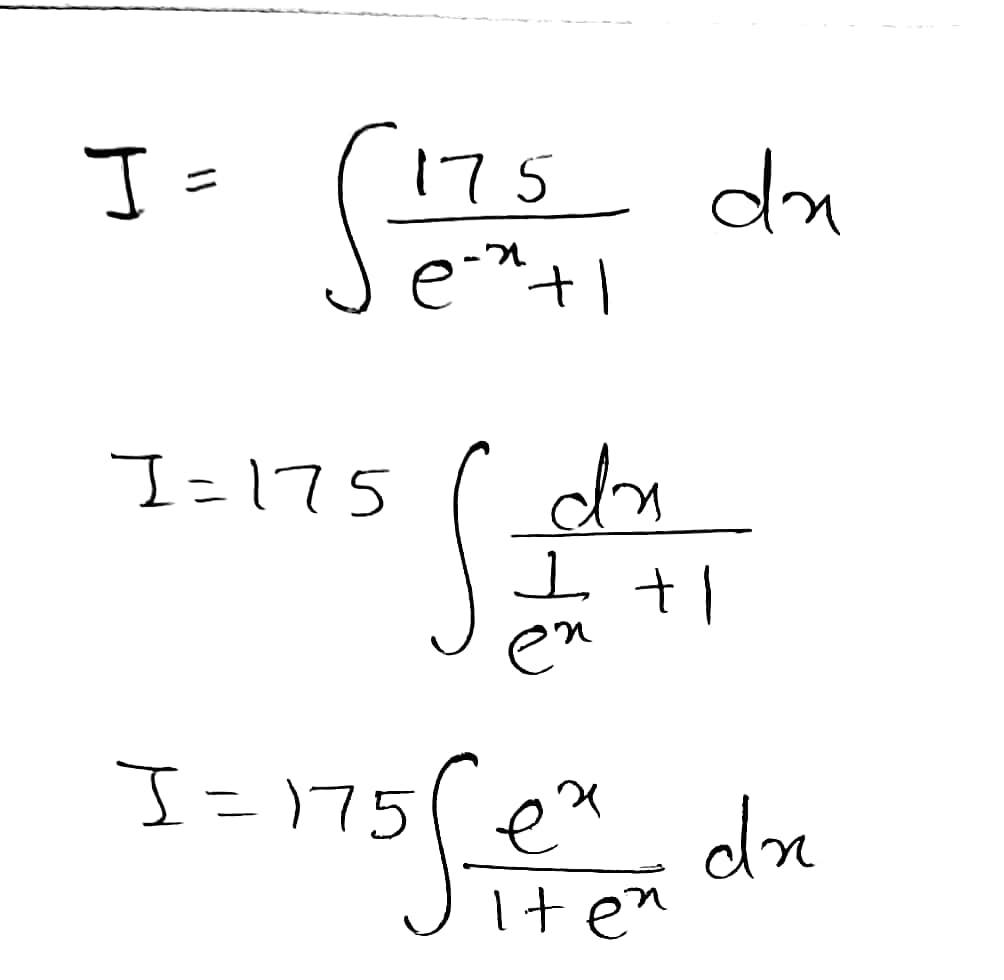 I = ∫ 175 / (e^{-x} + 1) dx
I = 175 ∫ dx / (1/e^x + 1)
I = 175 ∫ e^x / (1 + e^x) dx